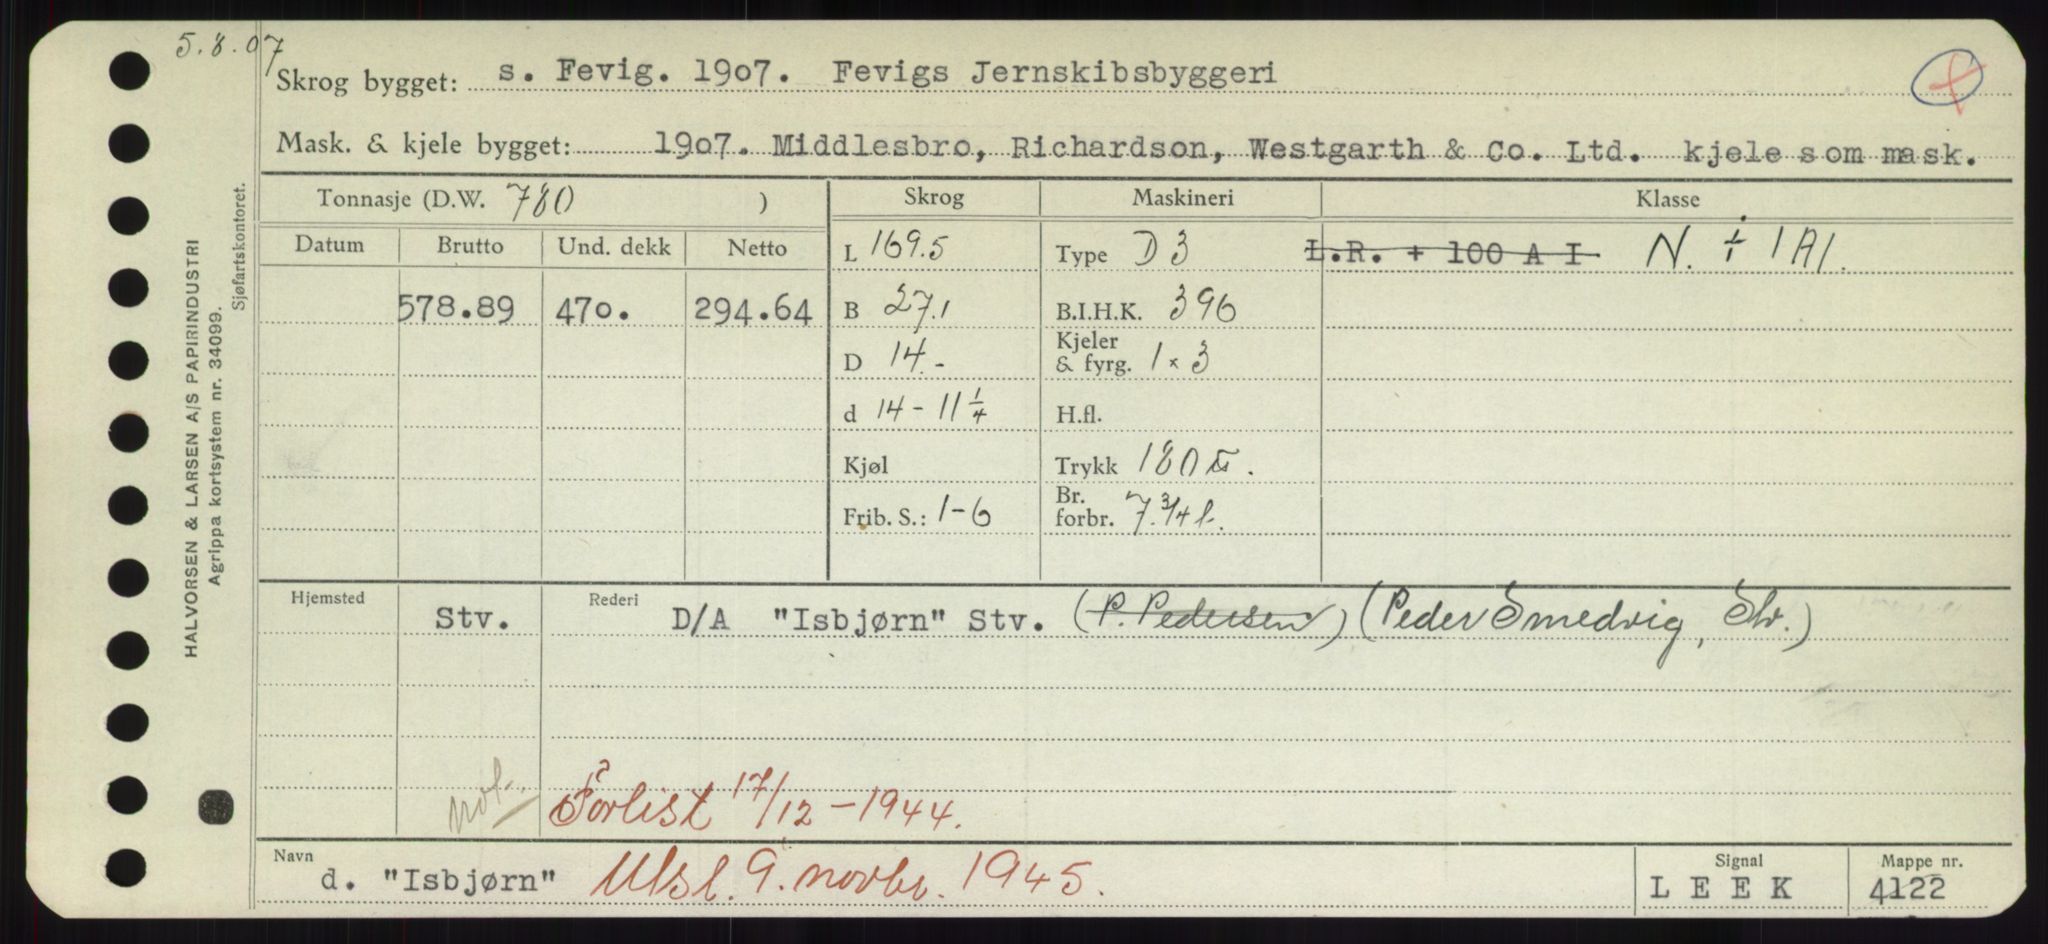 5.8.07
Skrog bygget: s. Fevig. 1907. Fevigs Jernskibsbyggeri
Mask. & kjele bygget: 1907. Middlesbro, Richardson, Westgarth & Co. Ltd. kjele som mask.
Tonnasje (D.W. 780 ) Skrog Maskineri Klasse
Datum Brutto Und. dekk Netto L 169.5 Type D 3 L.R. + 100 A I N. + 1A1.
578.89 470. 294.64 B 27.1 B.I.H.K. 396
D 14.- Kjeler & fyrg. 1 x 3
d 14-11 1/4 H.fl.
Kjøl Trykk 180
Frib. S.: 1-6 Br. forbr. 7.3/4 t.
Hjemsted Stv. Rederi D/A "Isbjørn" Stv. (P. Pedersen) (Peder Smedvig, Stv.)
not.
Forlist 17/12-1944.
Navn d. "Isbjørn" Utsl. 9. novbr. 1945. Signal LEEK Mappe nr. 4122
HALVORSEN & LARSEN A/S PAPIRINDUSTRI
Agrippa kortsystem nr. 34099.
Sjøfartskontoret.